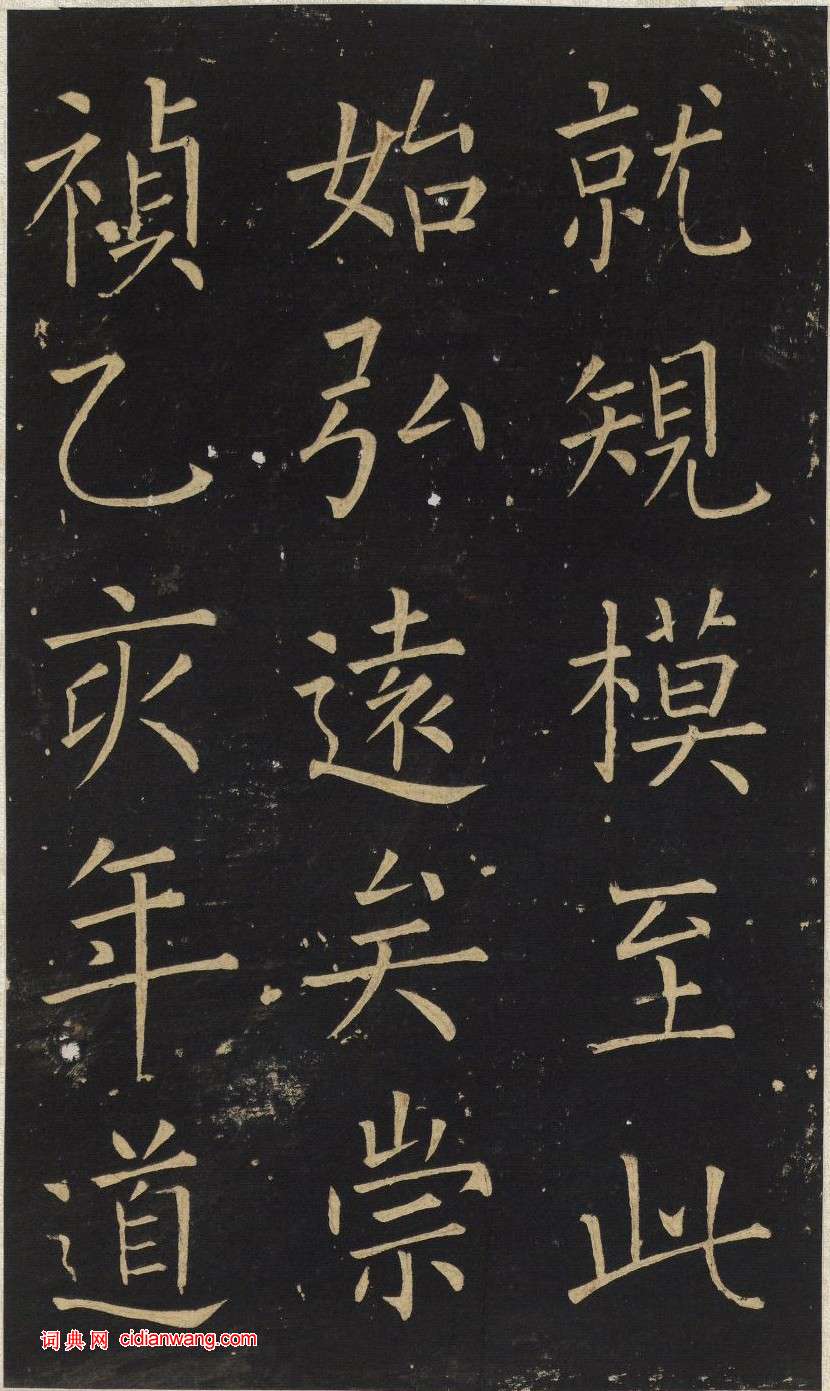 就規模至此
始弘遠矣崇
禎乙亥年道
词典网 cidianwang.com